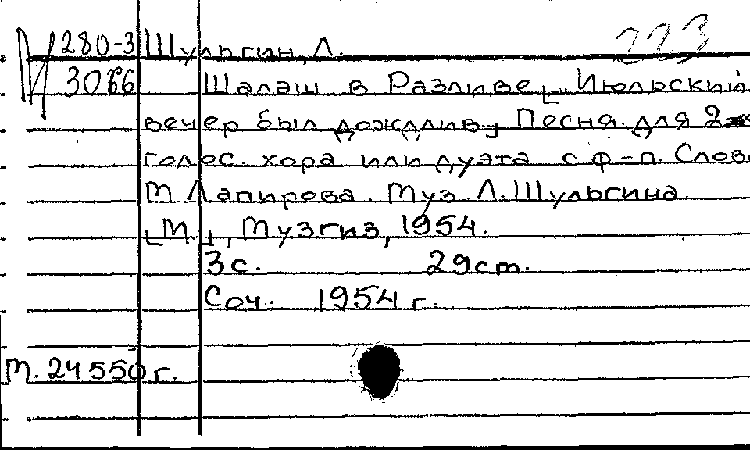 И 280-3 Шульгин, Л. 223
3066 Шалаш в Разливе [Июльский
вечер был дождлив] Песня для 2х
голос. хора или дуэта с ф-п. Слова
М Лапирова. Муз Л. Шульгина
[М.], Музгиз, 1954.
3с. 29 cm.
Соч. 1954 г.
М. 24550 г.